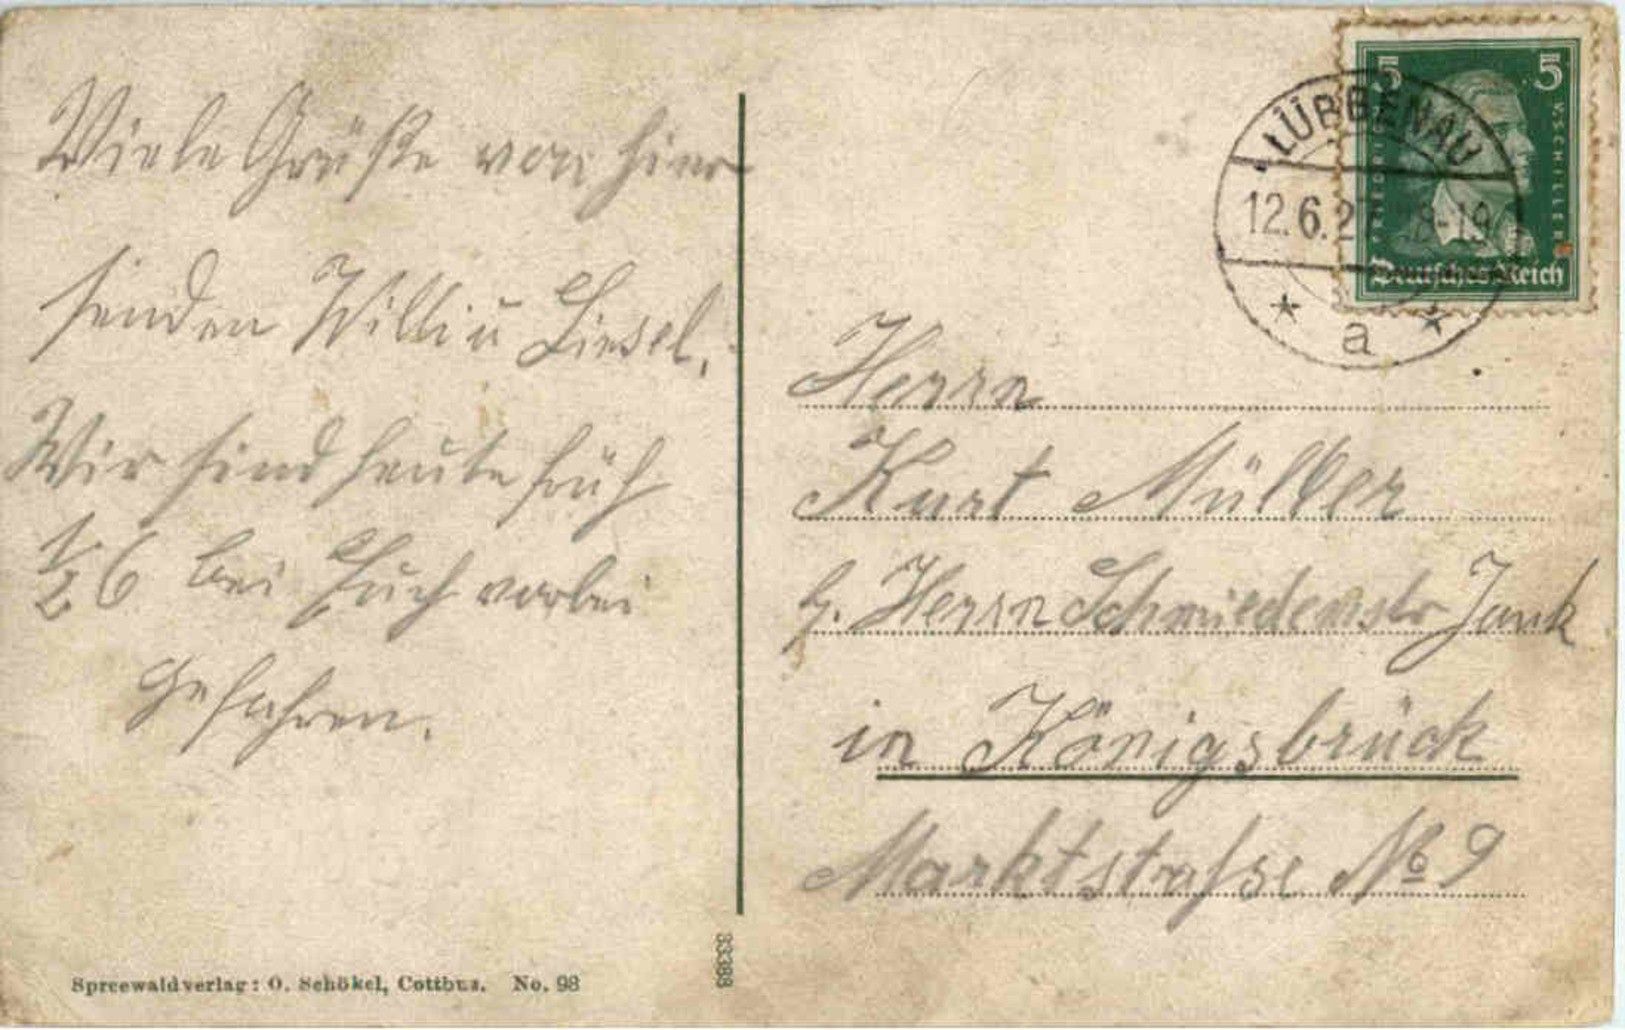 Viele Grüße von hier
senden Willi u Liesel.
Wir sind heute früh
1/2 6 bei Euch vorbei
gefahren.
Spreewaldverlag: O. Schökel, Cottbus. No. 98
33388
5 5
FRIEDRICH V. SCHILLER
Deutsches Reich
LÜBBENAU
12.6.2 18-19
* a *
Herrn
Kurt Müller
Herrn Schmiedemstr Jank
in Königsbrück
Marktstraſse No 9